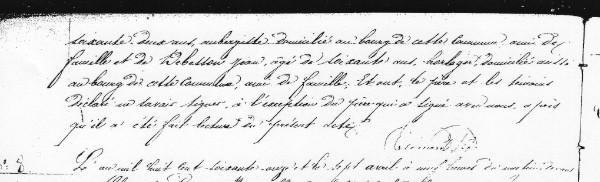 soixante deux ans, aubergiste domicilié au bourg de cette Commune ami de
famille et de Jean, âgé de soixante ans, horloger, domicilié aussi
au bourg de cette Commune ami de famille. Et ont, le père et les témoins
déclaré ne savoir signer, à l'exception du père qui a signé avec nous, après
qu'il a été fait lecture du présent acte.
N° 8
L'an mil huit cent soixante onze et le sept avril à neuf heures du matin devant